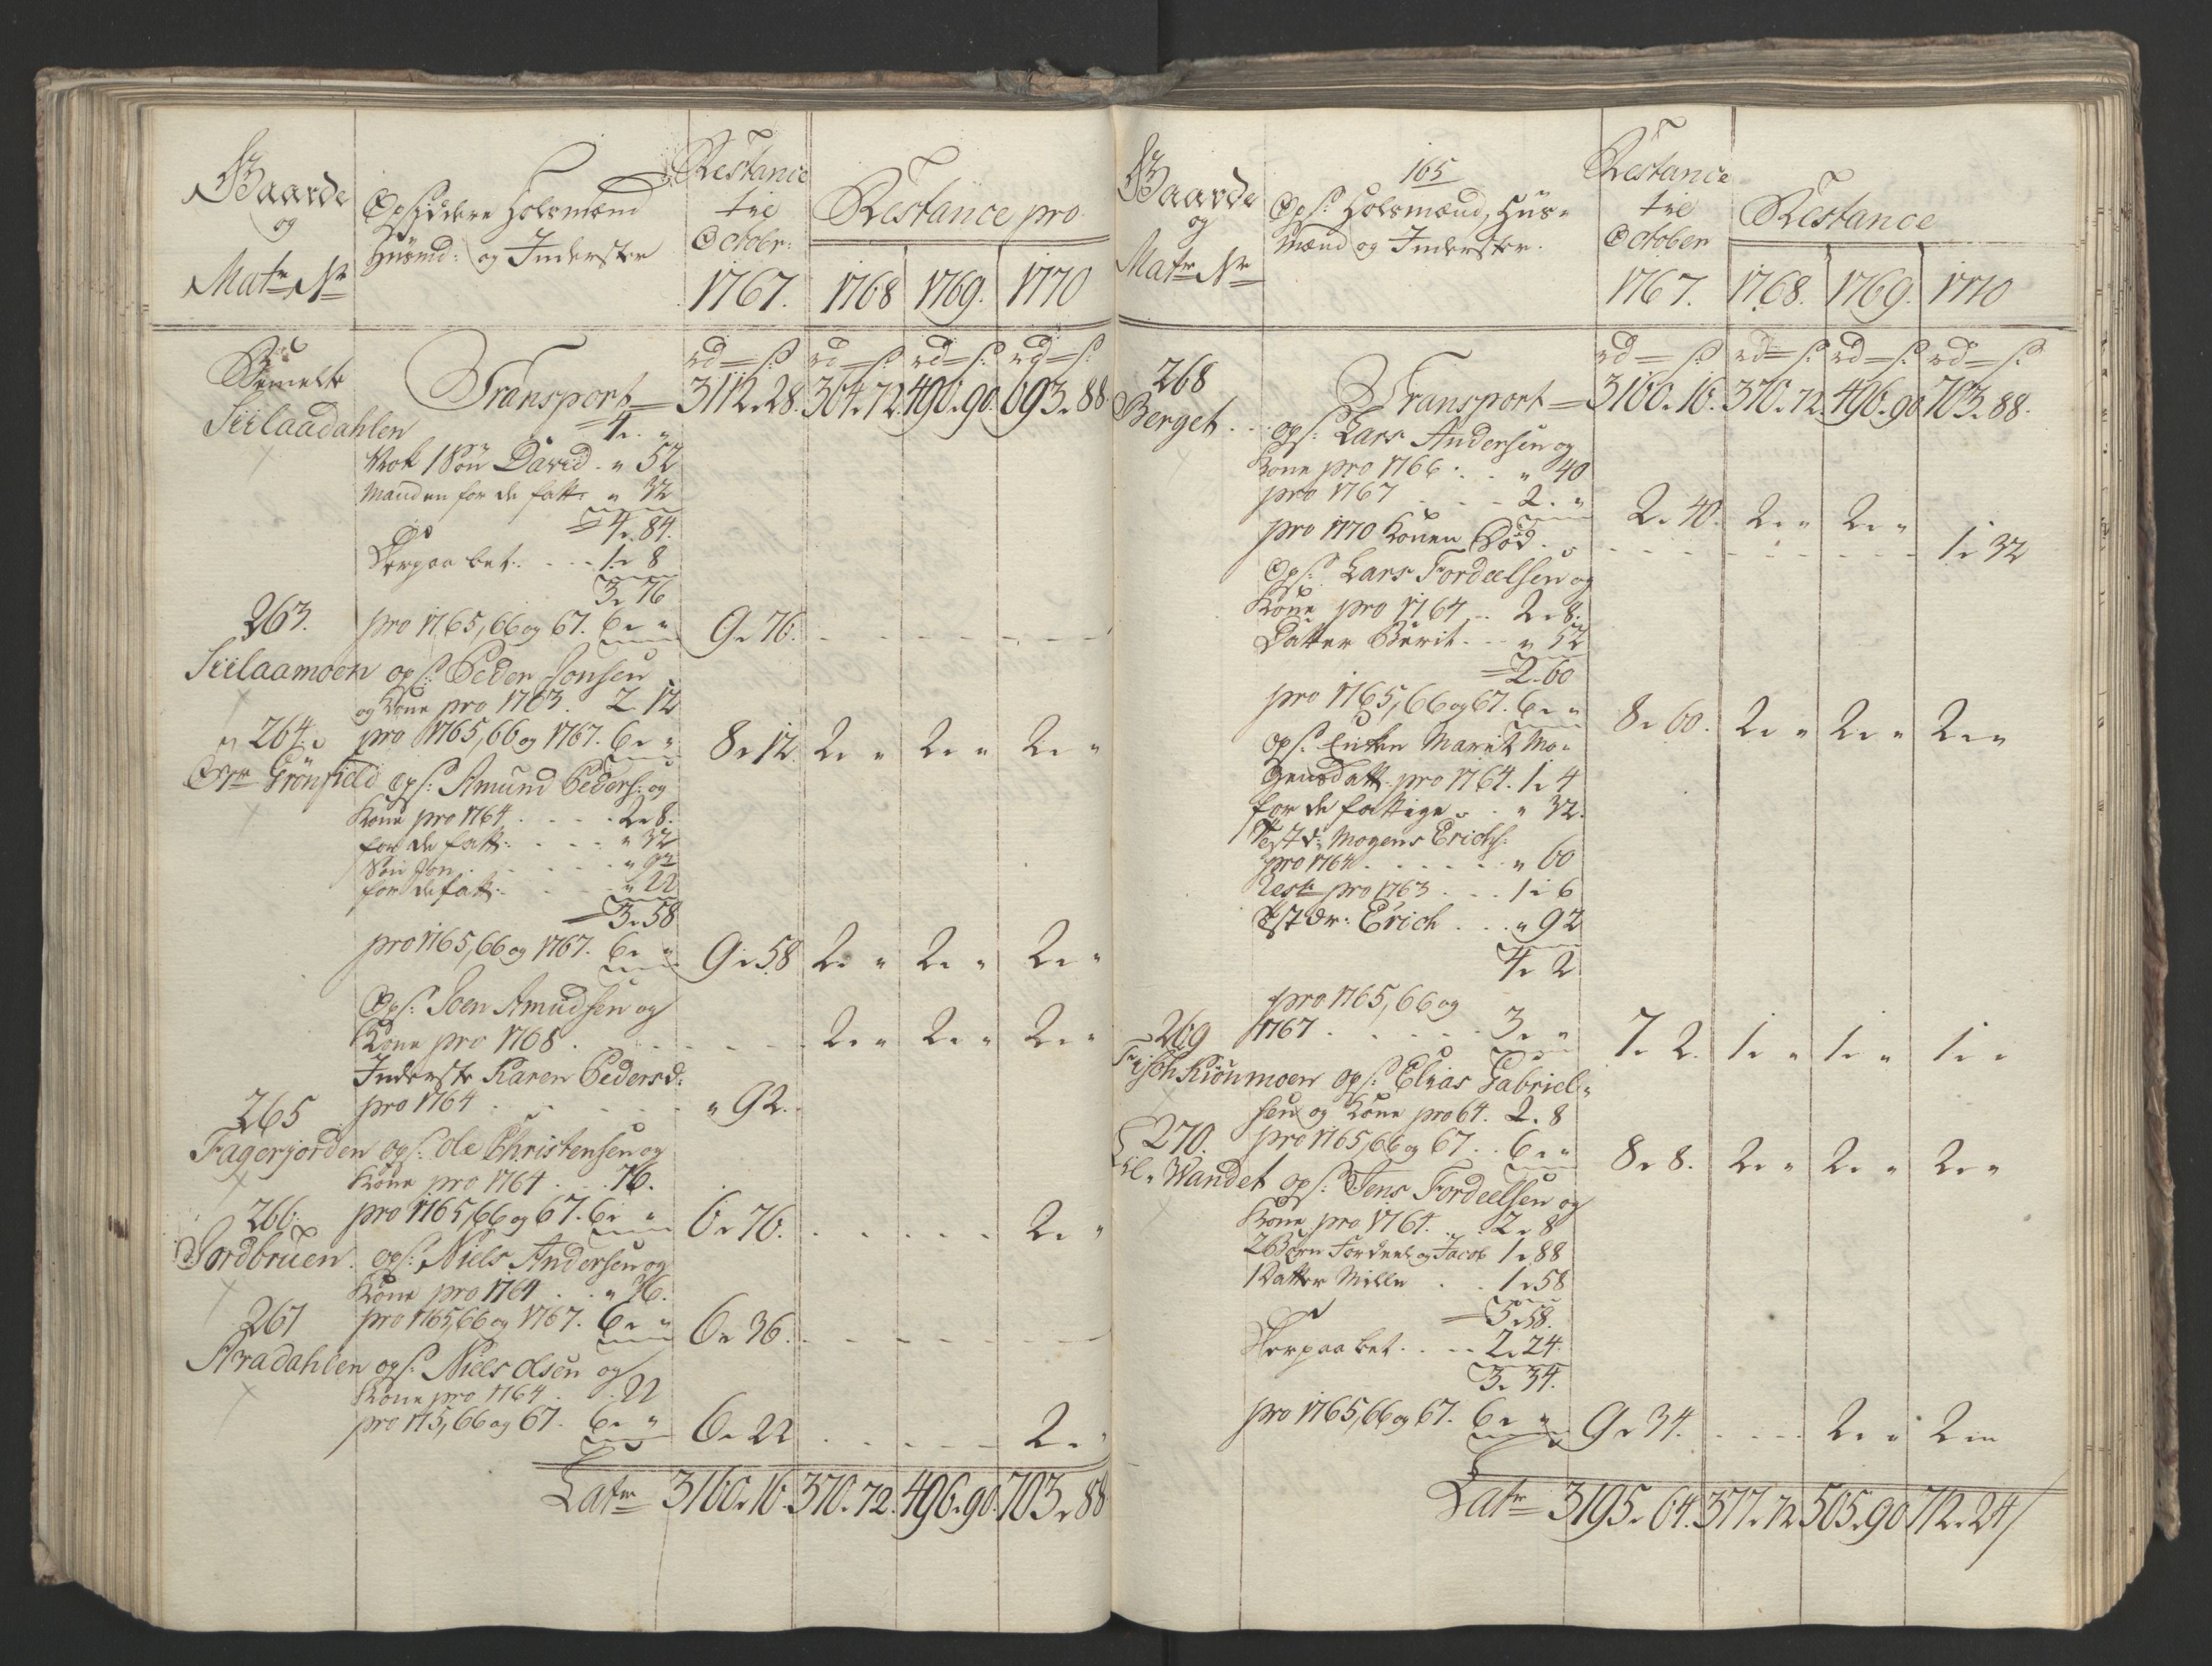 Gaarde
og
Matr Nr
Opsiddere Holsmænd
Huusmd: og Inderster
Restance
til
Octobr:
1767.
Restance pro
1768 1769. 1770
rd = s: rd = s: rd = s: rd = s:
Bemelte
Transport = 3112. 28. 364. 72. 490. 90. 693. 88.
Siilaadahlen = 4. "
Nok 1 Søn David . " 52
Manden for de fatt: " 32
= 4. 84.
Derpaa bet. . . . 1. 8
3. 76
263. pro 1765, 66 og 67. 6. " 9. 76.
Siilaamoen ops: Peder Jonsen
og Kone pro 1763. 2. 12
264. pro 1765, 66 og 1767. 6. " 8. 12. 2. " 2. " 2. "
Grønfield ops: Amund Peders: og
Kone pro 1764 . . . . 2. 8.
for de fatt: . . . . " 32
Søn Jon . . . . . " 92
for de fatt: . . . . " 22
= 3. 58
pro 1765, 66 og 1767. 6. " 9. 58 2. " 2. " 2. "
Ops: Joen Amudsen og
Kone pro 1768 . 2. " 2. " 2. "
Inderste Karen Pedersd:
265 pro 1764 . . . . . . " 92.
Fagerjorden ops: Ole Christensen og
Kone pro 1764 . . . 76.
266. pro 1765, 66 og 67. 6. " 6. 76. 2. "
Jordbruen. ops: Niels Andersen og
Kone pro 1764 . . " 36.
267 pro 1765, 66 og 1767. 6. " 6. 36.
Straadahlen ops: Niels Olsen og
Kone pro 1764 . . 22
pro 175, 66 og 67. 6. " 6. 22 2. "
Latr 3160. 16. 370. 72. 496. 90. 703. 88
Gaarde
og
Matr Nr
165
Ops: Holsmænd, Hus=
mænd og Inderster.
Restance
til
October
1767.
Restance
1768. 1769. 1770
rd = s: rd = s: rd = s: rd = s:
268 Transport = 3160. 16. 370. 72. 496. 90 703. 88.
Berget . . ops: Lars Andersen og
Kone pro 1766 . . " 40
pro 1767 . . . . 2. " 2. 40. 2. " 2. "
pro 1770 Konen Død . 1. 32
Ops: Lars Fordelsen og
Kone pro 1764 . . 2. 8.
Datter Berit. . . " 52
= 2. 60
pro 1765, 66 og 67. 6. " 8. 60. 2. " 2. " 2. "
ops: Enken Marit Mo=
gensdatt. pro 1764. 1. 4
for de fattige . . " 32.
Mogens Erichs:
pro 1764 . . . . . " 60
Rest pro 1763 . . . 1. 6
Erich . . . " 92
4. 2
pro 1765, 66 og
269 1767 . . . . . 3. " 7. 2. 1. " 1. " 1. "
ops: Elias Gabriel=
sen og Kone pro 64. 2. 8
270. pro 1765, 66 og 67 . . 6. " 8. 8. 2. " 2. " 2. "
Wandet ops: Jens Fordeelsen og
Kone pro 1764. . 2. 8
2 Børn Fordeel og Jacob 1. 88
1 Datter Mille . . 1. 58
= 5. 58.
Derpaa bet. . . . 2. 24.
3. 34.
pro 1765, 66 og 67. 6. " 9. 34. 2. " 2. "
Latr 3195. 64. 377. 72 505. 90 712. 24